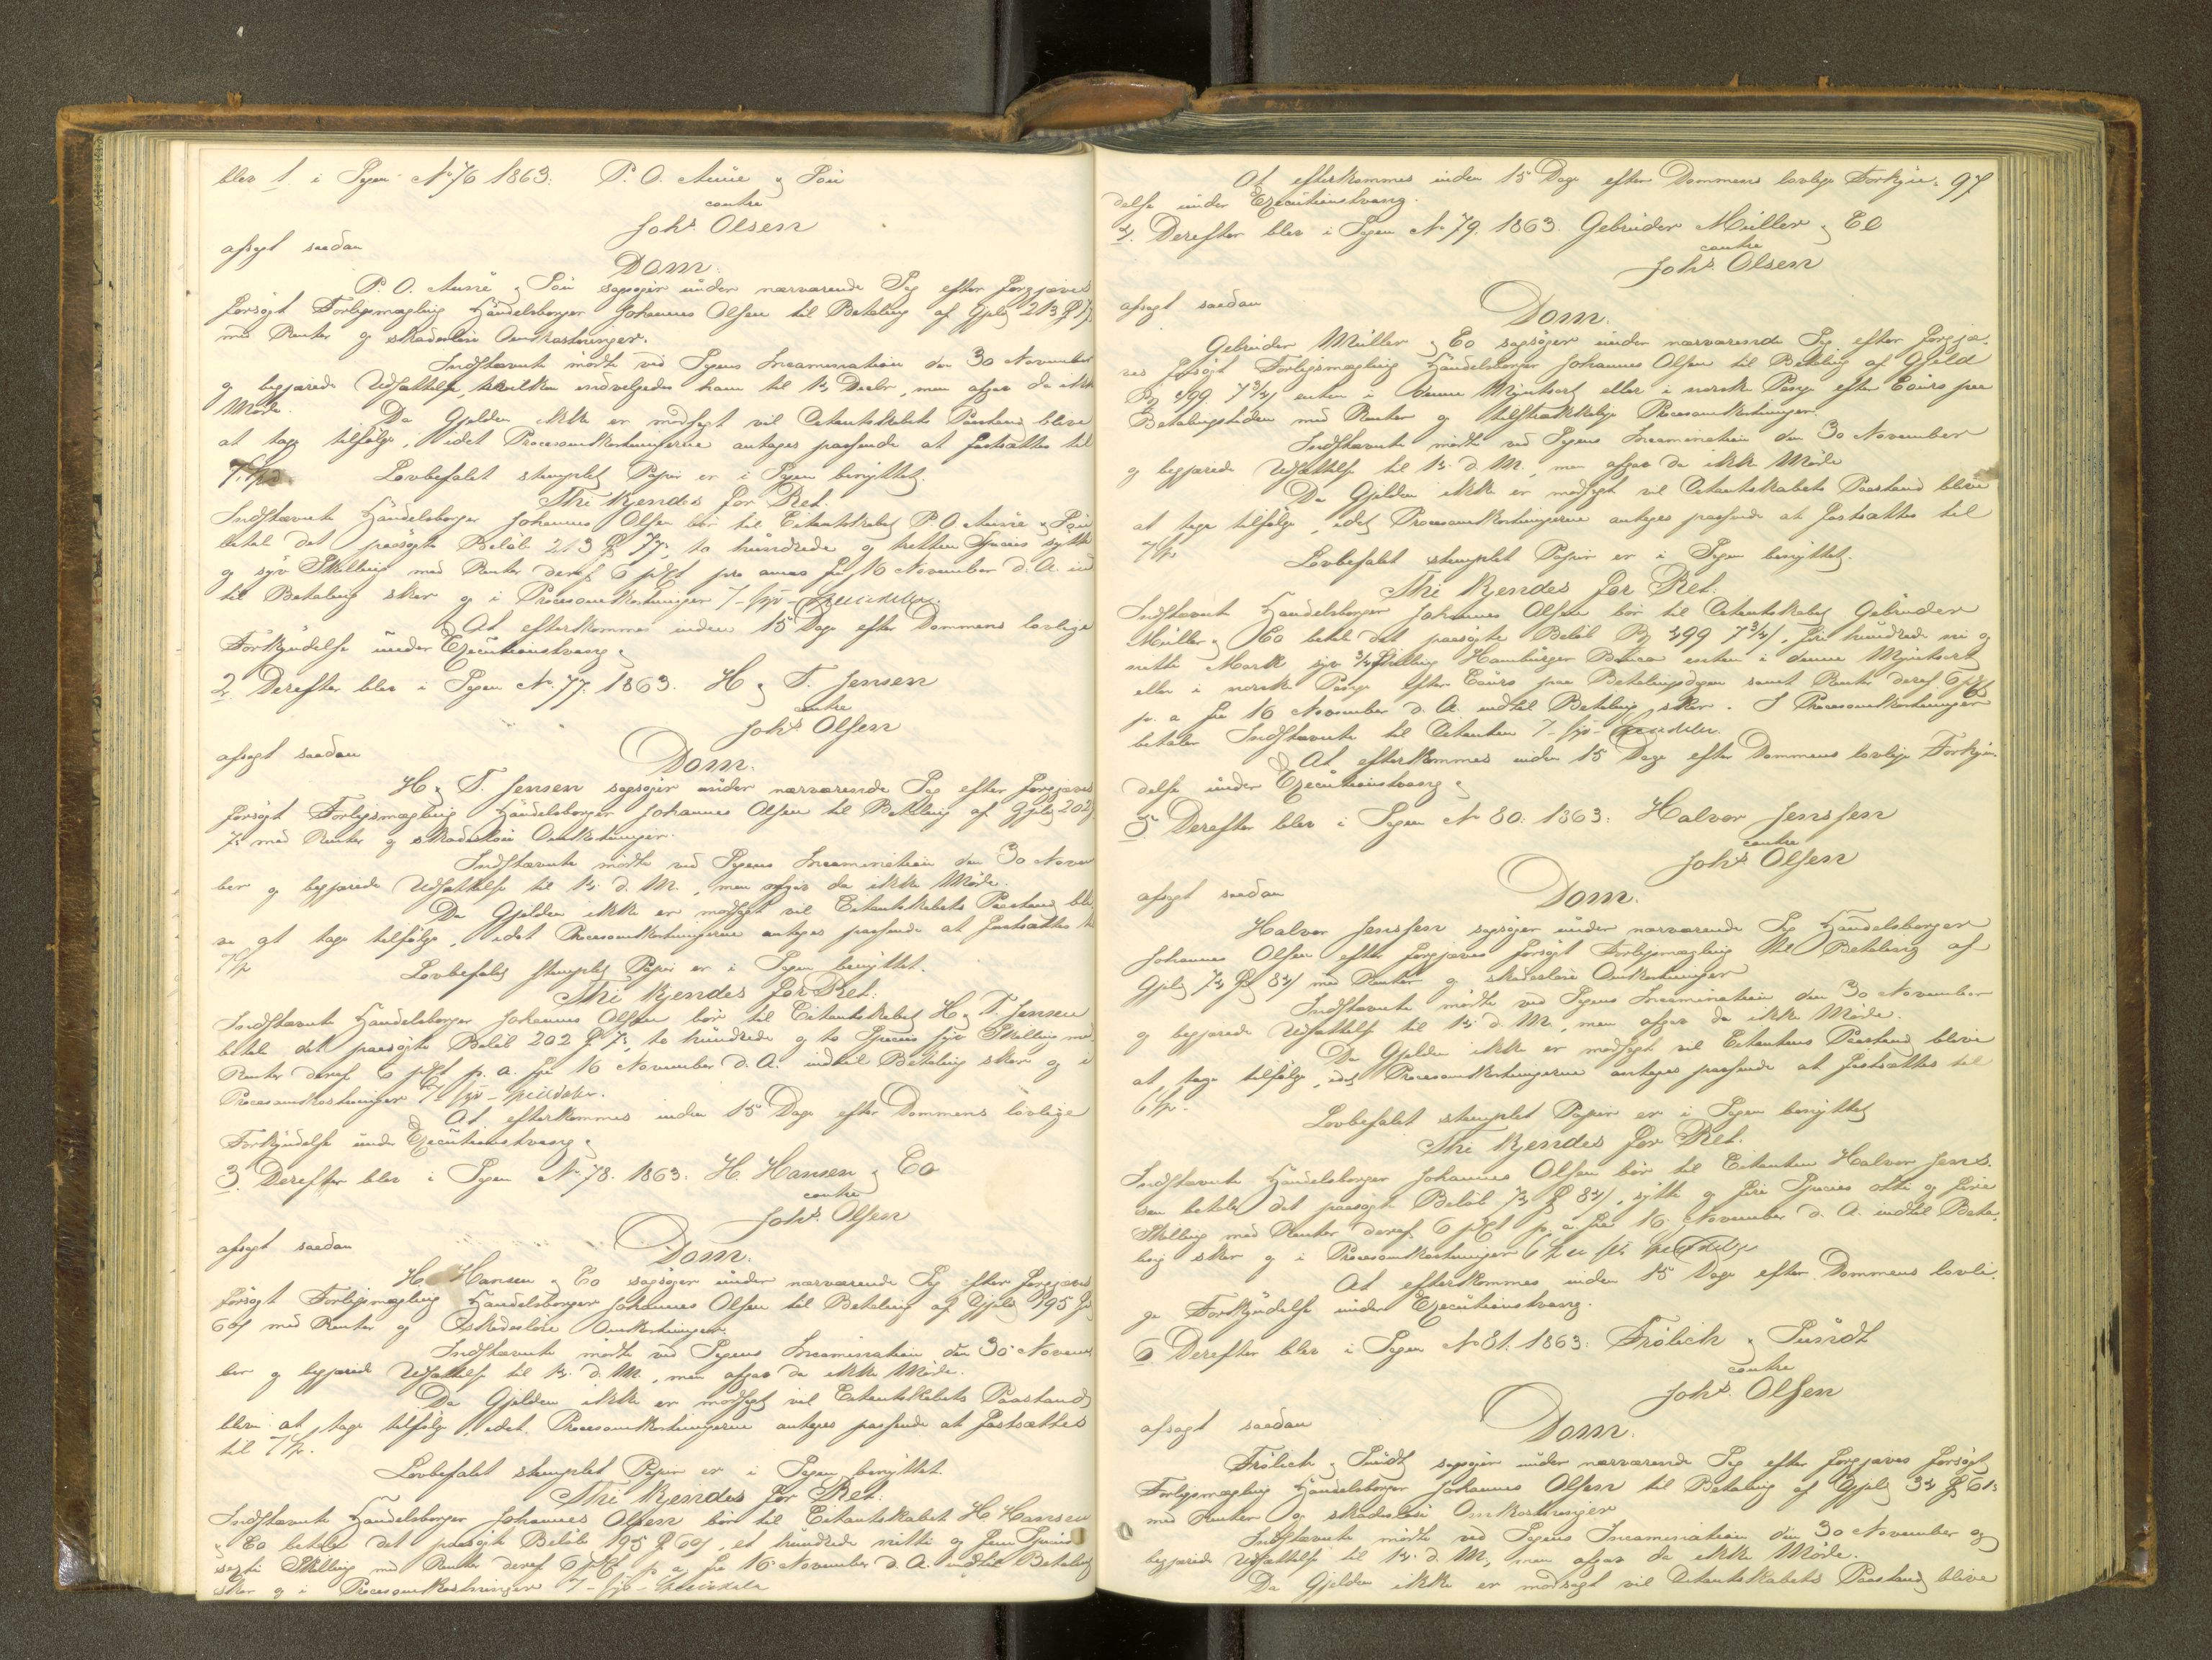 blev 1 i Sagen No 76 1863. P. O. Aune & Søn
contra
Johs. Olsen
afsagt saadan
Dom.
P. O. Aune & Søn sagsøger under nærværende Sag efter forgjæves
forsøgt Forligsmægling Handelsborger Johannes Olsen til Betaling af Gjeld 213
med Renter og skadesløse Omkostninger.
Indstævnte mødte ved Sagens Incamination den 30 November
og begjærede Udsættelse, hvilken indvilgedes ham til 14 Decbr, men afgav da ikke
Møde. Da Gjelden ikke er modsagt vil Citantskabets Paastand blive
at tage tilfølge, idet Procesomkostningerne antages passende at fastsættes til
Lovbefalet stemplet Papir er i Sagen benyttet.
Thi kjendes for Ret:
Indstævnte Handelsborger Johannes Olsen bør til Citantskabet P. O. Aune & Søn
betale det paasøgte Beløb 213 77, to hundrede og tretten Species sytti
og syv Skilling med Renter deraf 6 pCt pro anno fra 16 November d. A. ind
til Betaling sker og i Procesomkostninger 7 - syv - Speciedaler.
At efterkommes inden 15 Dage efter Dommens lovlige
Forkyndelse under Executionstvang.
2. Derefter blev i Sagen No. 77. 1863. H & T. Jensen
contra
Johs. Olsen
afsagt saadan
Dom.
H & T. Jensen sagsøger under nærværende Sag efter forgjæves
forsøgt Forligsmægling Handelsborger Johannes Olsen til Betaling af Gjeld 202
7 med Renter og skadesløse Omkostninger.
Indstævnte mødte ved Sagens Incamination den 30 Novem
ber og begjærede Udsættelse til 14 d. M., men afgav da ikke Møde.
Da Gjelden ikke er modsagt vil Citantskabets Paastand bli
ve at tage tilfølge, idet Procesomkostningerne antages passende at fastsættes
Lovbefalet stemplet Papir er i Sagen benyttet.
Thi kjendes for Ret:
Indstævnte Handelsborger Johannes Olsen bør til Citantskabet H & T. Jensen
betale det paasøgte Beløb 202 7, to hundrede og to Species syv Skilling med
Renter deraf 6 pCt p. a. fra 16 November d. A. indtil Betaling sker og i
Procesomkostninger 7 - syv - Speciedaler.
At efterkommes inden 15 Dage efter Dommens lovlige
Forkyndelse under Executionstvang.
3. Derefter blev i Sagen No. 78. 1863. H. Hansen & Co
contra
Johs. Olsen
afsagt saadan
Dom.
H. Hansen & Co sagsøger under nærværende Sag efter forgjæves
forsøgt Forligsmægling Handelsborger Johannes Olsen til Betaling af Gjeld 195
60 med Renter og skadesløse Omkostninger.
Indstævnte mødte ved Sagens Incamination den 30 Novem
ber og begjærede Udsættelse til 14 d. M., men afgav da ikke Møde.
Da Gjelden ikke er modsagt vil Citantskabets Paastand
blive at tage tilfølge, idet Procesomkostningerne antages passende at fastsættes
til 7
Lovbefalet stemplet Papir er i Sagen benyttet.
Thi kjendes for Ret:
Indstævnte Handelsborger Johannes Olsen bør til Citantskabet H. Hansen
& Co betale det paasøgte Beløb 195 60, et hundrede nitti og fem Species
sexti Skilling med Renter deraf 6 pCt p. a. fra 16 November d. A. indtil Betaling
sker og i Procesomkostninger 7 - syv - Speciedaler
At efterkommes inden 15 Dage efter Dommens lovlige Forkyn- 97
delse under Executionstvang.
4. Derefter blev i Sagen No 79. 1863. Gebrüder Müller & Co
contra
Johs. Olsen
afsagt saadan
Dom.
Gebrüder Müller & Co sagsøger under nærværende Sag efter forgjæ-
ves forsøgt Forligsmægling Handelsborger Johannes Olsen til Betaling af Gjeld
499 7 3/4 enten i denne Myntsort eller i norske Penge efter Cours paa
Betalingstiden med Renter og tilstrækkelige Procesomkostninger.
Indstævnte mødte ved Sagens Incamination den 30 November
og begjærede Udsættelse til 14 d. M., men afgav da ikke Møde
Da Gjelden ikke er modsagt vil Citantskabets Paastand blive
at tage tilfølge, idet Procesomkostningerne antages passende at fastsættes til
7
Lovbefalet stemplet Papir er i Sagen benyttet.
Thi kjendes for Ret:
Indstævnte Handelsborger Johannes Olsen bør til Citantskabet Gebrüder
Müller & Co betale det paasøgte Beløb 499 7 3/4, fire hundrede ni og
nitti Mark syv 3/4 Skilling Hamburger Banco enten i denne Myntsort
eller i norske Penge efter Cours paa Betalingsdagen samt Renter deraf 6 pCt
p. a fra 16 November d. A. indtil Betaling sker. I Procesomkostninger
betaler Indstævnte til Citanten 7 - syv - Speciedaler.
At efterkommes inden 15 Dage efter Dommens lovlige Forkyn-
delse under Executionstvang.
5 Derefter blev i Sagen No 80. 1863: Halvor Jenssen
contra
Johs. Olsen
afsagt saadan
Dom.
Halvor Jenssen sagsøger under nærværende Sag Handelsborger
Johannes Olsen efter forgjæves forsøgt Forligsmægling til Betaling af
Gjeld 74 84 med Renter og skadesløse Omkostninger
Indstævnte mødte ved Sagens Incamination den 30 November
og begjærede Udsættelse til 14 d. M., men afgav da ikke Møde.
Da Gjelden ikke er modsagt vil Citantens Paastand blive
at tage tilfølge, idet Procesomkostningerne antages passende at fastsættes til
6
Lovbefalet stemplet Papir er i Sagen benyttet
Thi kjendes for Ret:
Indstævnte Handelsborger Johannes Olsen bør til Citanten Halvor Jens-
sen betale det paasøgte Beløb 74 84, sytti og fire Species otti og fire
Skilling med Renter deraf 6 pCt p. a. fra 16 November d. A. indtil Beta-
ling sker og i Procesomkostninger 6
At efterkommes inden 15 Dage efter Dommens lovli-
ge Forkyndelse under Executionstvang.
6 Derefter blev i Sagen No 81. 1863: Frølich & Sundt
contra
Johs. Olsen
afsagt saadan
Dom.
Frølich & Sundt sagsøger under nærværende Sag efter forgjæves forsøgt
Forligsmægling Handelsborger Johannes Olsen til Betaling af Gjeld 34
med Renter og skadesløse Omkostninger
Indstævnte mødte ved Sagens Incamination den 30 November og
begjærede Udsættelse til 14 d. M., men afgav da ikke Møde.
Da Gjelden ikke er modsagt vil Citantskabets Paastand blive